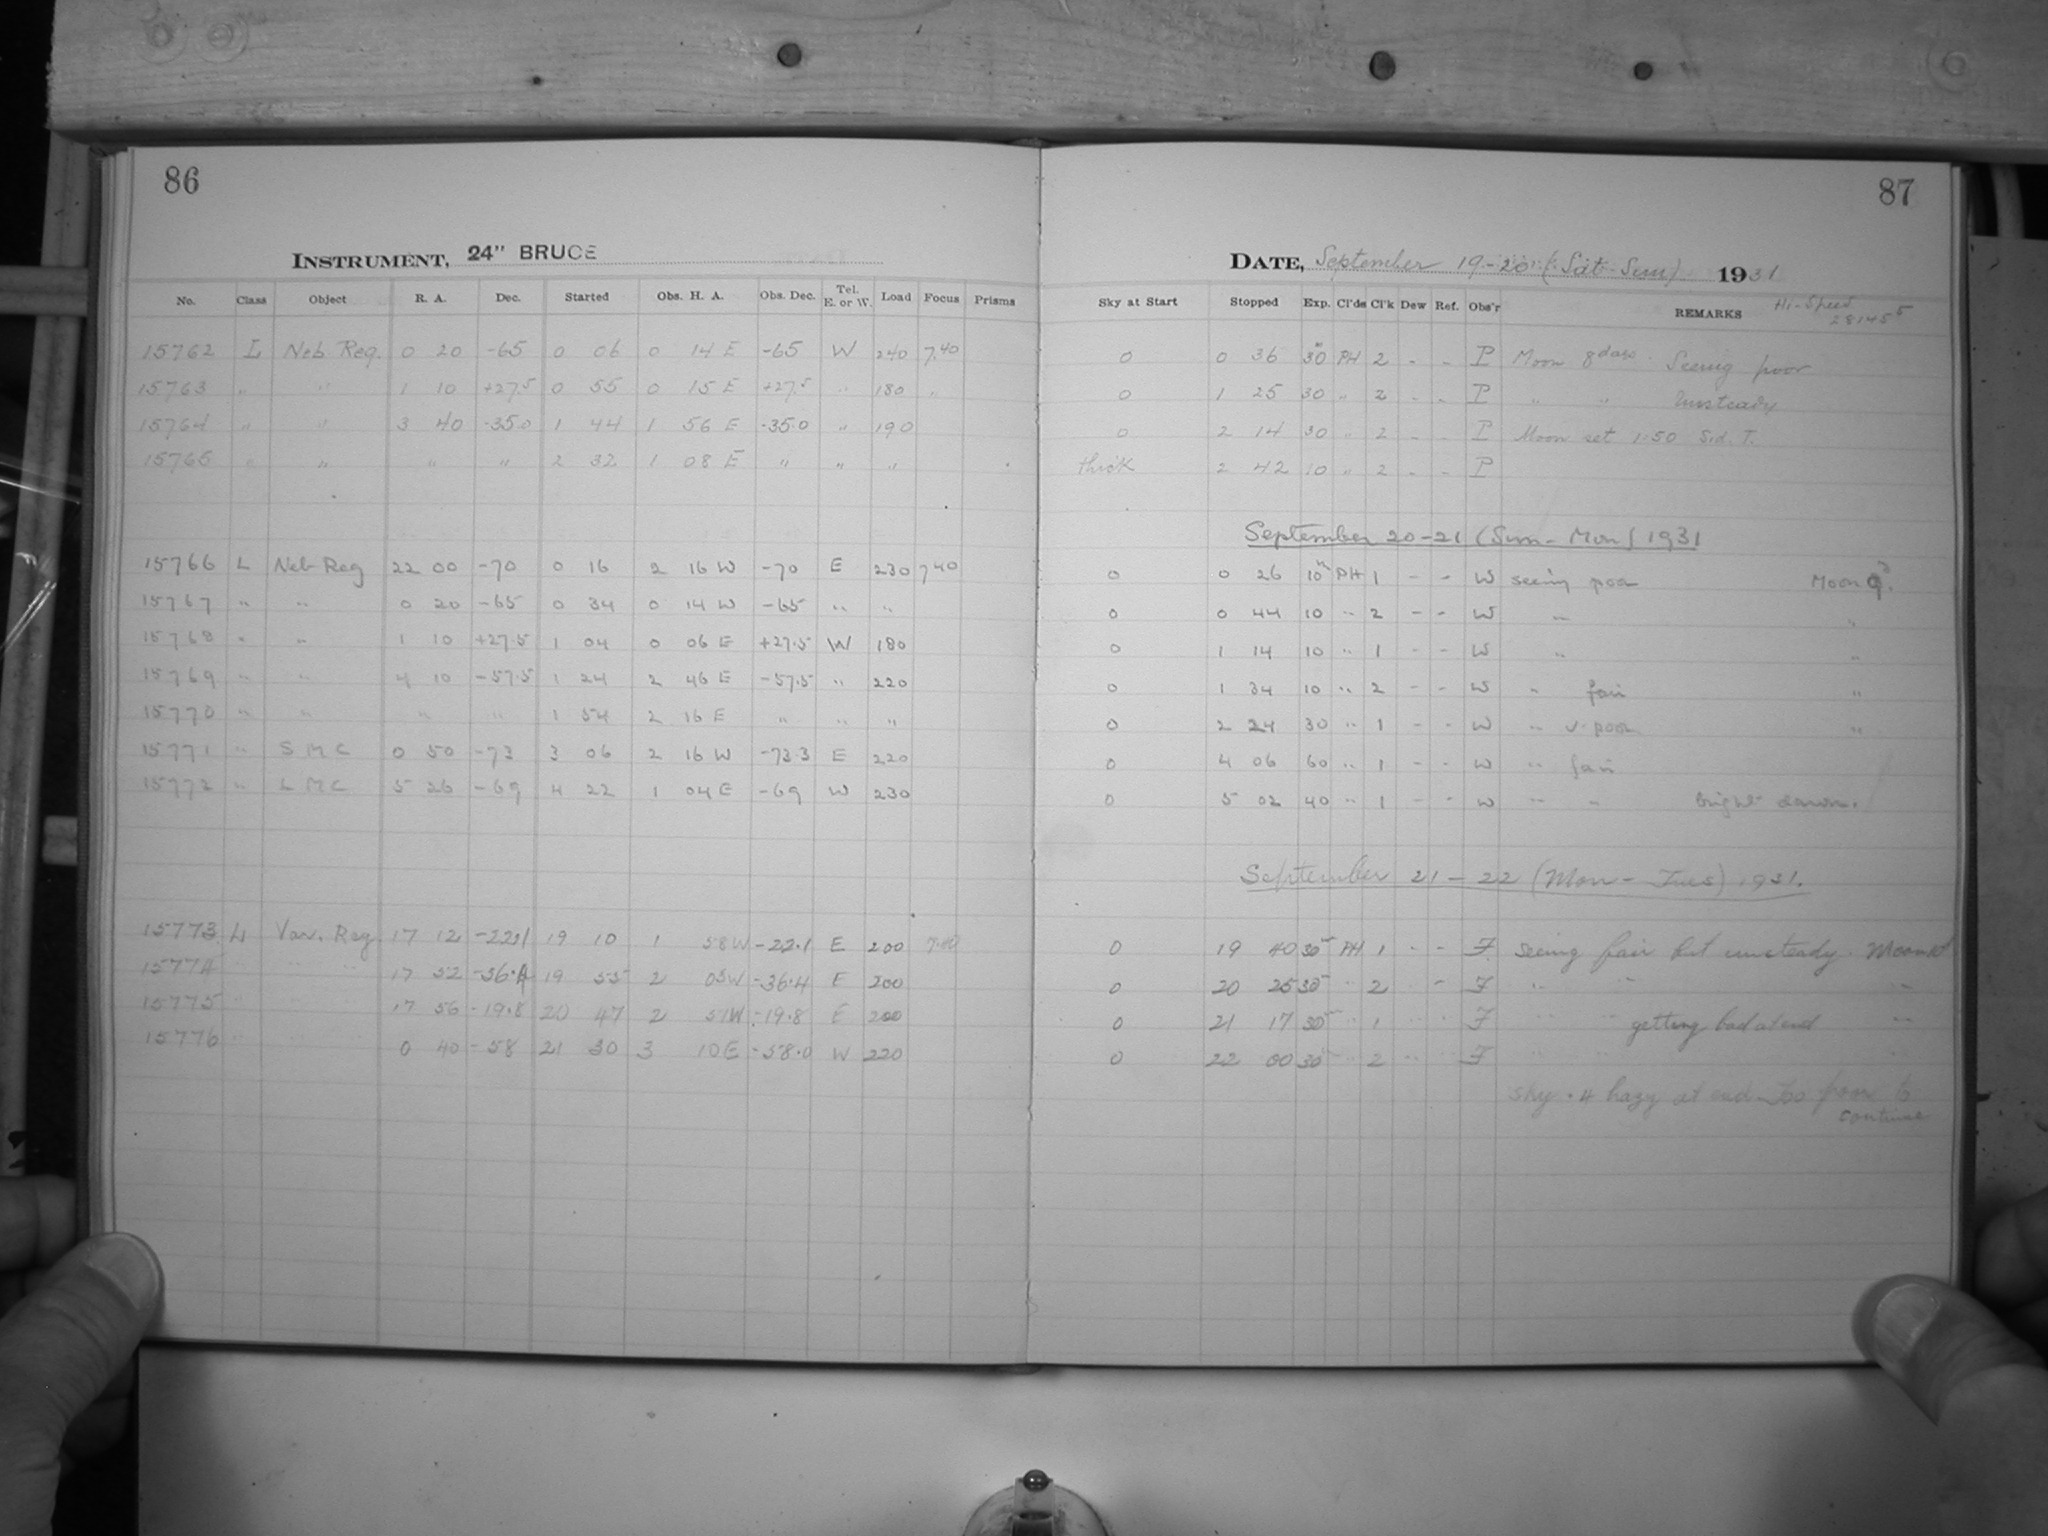 86
INSTRUMENT, 24" BRUCE
No. Class Object R. A. Dec. Started Obs. H. A. Obs. Dec. Tel. E. or W. Load Focus Prisms
15762 L Neb Reg. 0 20 -65 0 06 0 14 E -65 W 240 7.40
15763 " " 1 10 +27.5 0 55 0 15 E +27.5 " 180 "
15764 " " 3 40 -35.0 1 44 1 56 E -35.0 " 190
15765 " " " " 2 32 1 08 E " " "
15766 L Neb Reg 22 00 -70 0 16 2 16 W -70 E 230 740
15767 " " 0 20 -65 0 34 0 14 W -65 " "
15768 " " 1 10 +27.5 1 04 0 06 E +27.5 W 180
15769 " " 4 10 -57.5 1 24 2 46 E -57.5 " 220
15770 " " " " 1 54 2 16 E " " "
15771 " S M C 0 50 -73 3 06 2 16 W -73.3 E 220
15772 " L M C 5 26 -69 4 22 1 04 E -69 W 230
15773 L Var. Reg. 17 12 -22.1 19 10 1 58 W -22.1 E 200 7.40
15774 " " " 17 52 -36.4 19 55 2 03 W -36.4 E 200
15775 " 17 56 -19.8 20 47 2 51 W -19.8 E 200
15776 " 0 40 -58 21 30 3 10 E -58.0 W 220
87
DATE, September 19-20 (Sat-Sun) 1931
Sky at Start Stopped Exp. Cl'ds Cl'k Dew Ref. Obs'r REMARKS Hi-Speed 28145
0 0 36 30 PH 2 - - P Moon 8 days. Seeing poor
0 1 25 30 " 2 - - P " " Unsteady
0 2 14 30 " 2 - - P Moon set 1:50 Sid. T.
thick 2 42 10 " 2 - - P
September 20-21 (Sun-Mon) 1931
0 0 26 10m PH 1 - - W seeing poor Moon 9d.
0 0 44 10 " 2 - - W " "
0 1 14 10 " 1 - - W " "
0 1 34 10 " 2 - - W " fair "
0 2 24 30 " 1 - - W " v. poor "
0 4 06 60 " 1 - - W " fair
0 5 02 40 " 1 - - W " " bright dawn.
September 21-22 (Mon-Tues) 1931.
0 19 40 30 PH 1 - - F. seeing fair but unsteady.
0 20 25 30 " 2 - F " " "
0 21 17 30 " 1 F " " getting bad at end "
0 22 00 30 " 2 F
sky .4 hazy at end Too poor to
continue